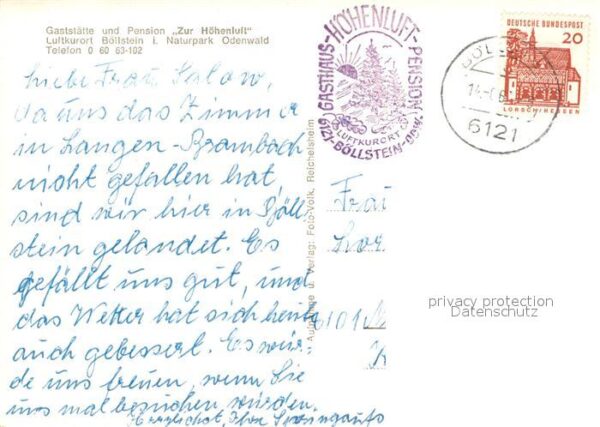 Gaststätte und Pension „Zur Höhenluft"
Luftkurort Böllstein i. Naturpark Odenwald
Telefon 0 60 63-102
Liebe Frau Salow,
da uns das Zimmer
in Langen-Brombach
nicht gefallen hat,
sind wir hier in Böll-
stein gelandet. Es
gefällt uns gut, und
das Wetter hat sich heute
auch gebessert. Es wür-
de uns freuen, wenn Sie
uns mal besuchen würden.
Herzlichst, Ihre
Aufnahme u. Verlag: Foto-Volk, Reichelsheim
GASTHAUS-HÖHENLUFT-PENSION
LUFTKURORT
6121-BÖLLSTEIN-ODW.
6121
DEUTSCHE BUNDESPOST
20
LORSCH/HESSEN
Frau
6101
privacy protection
Datenschutz